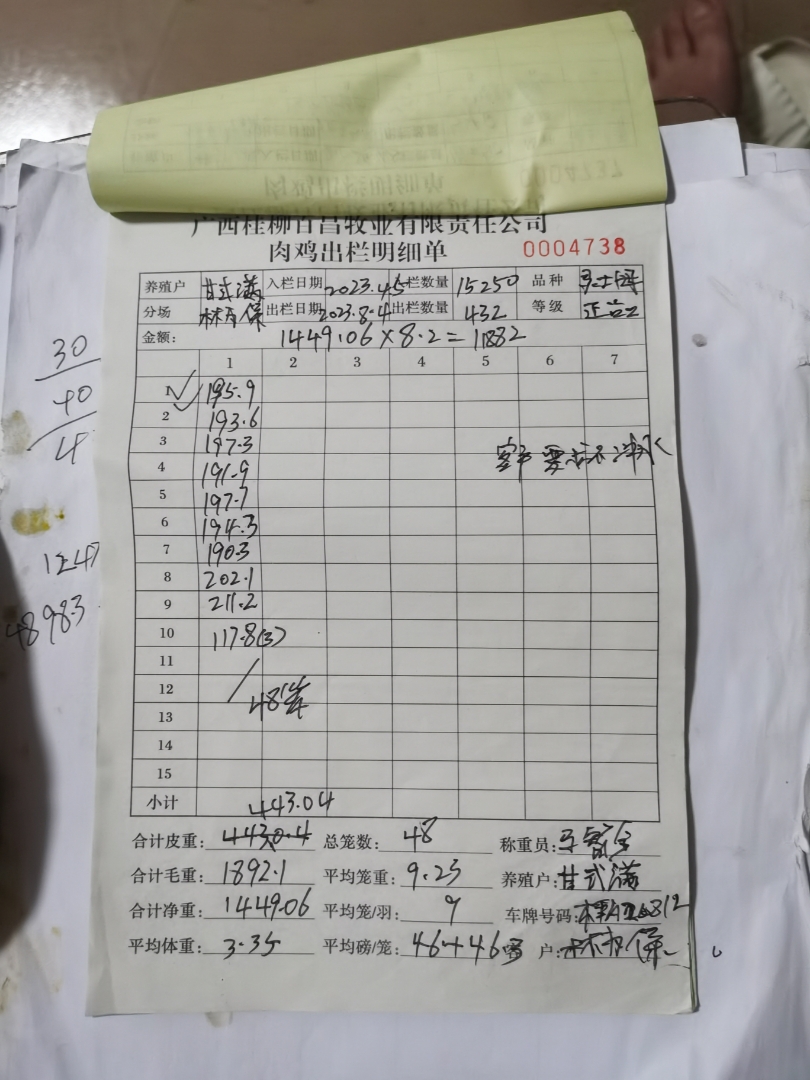 广西桂柳百昌牧业有限责任公司
肉鸡出栏明细单 0004738
养殖户 甘式满 入栏日期 2023.4.5 入栏数量 15250 品种
分场 出栏日期 2023.8.4 出栏数量 432 等级
金额： 1449.06×8.2=11882
1 2 3 4 5 6 7
1 195.9
2 193.6
3 197.3
客户要求不冲水
4 191.9
5 197.7
6 194.3
7 190.3
8 202.1
9 211.2
10 117.8(3)
11
12 48
13
14
15
小计 443.04
合计皮重： 4430.4 总笼数： 48 称重员：
合计毛重： 1892.1 平均笼重： 9.23 养殖户： 甘式满
合计净重： 1449.06 平均笼/羽： 9 车牌号码：
平均体重： 3.35 平均磅/笼： 4 户：
30
40
4
1247
48983